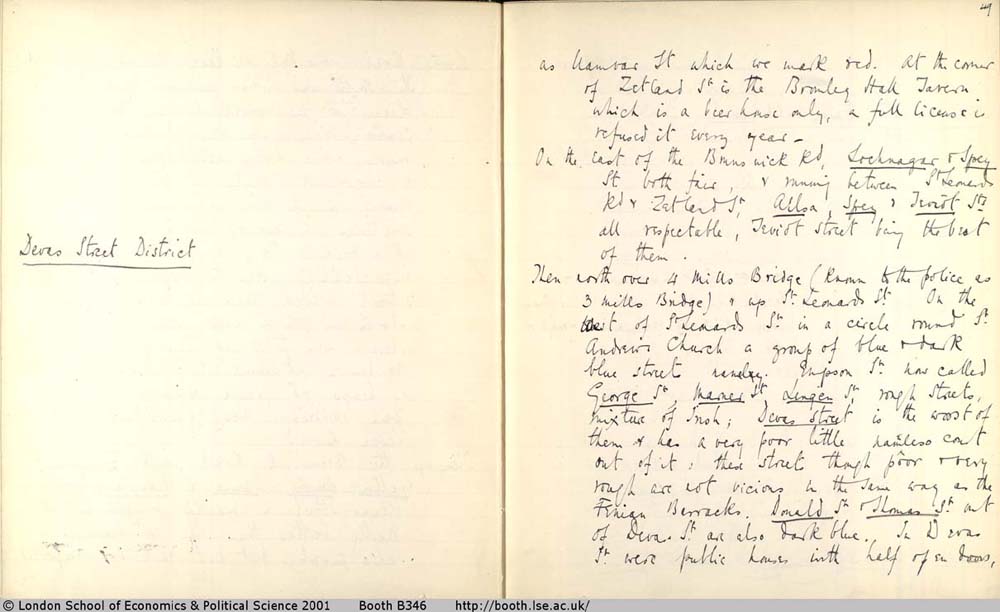 Devas Street District
49
as Narrow St which we mark red. At the corner
of Zetland St is the Bromley Hall Tavern
which is a beer house only, a full license is
refused it every year -
On the east of the Brunswick Rd, Lochnagar & Spey
St both fair, & running between St Leonards
Rd & Zetland St, Ailsa, Spey & Teviot Sts
all respectable, Teviot Street being the best
of them.
Then north over 4 Mills Bridge (known to the police as
3 mills Bridge) & up St Leonards St. On the
West of St Leonards St in a circle round St
Andrews Church a group of blue & dark
blue street namely. Empson St now called
George St, Marner St, Lingen St, rough streets,
mixture of Irish; Devas Street is the worst of
them & has a very poor little nameless court
out of it: these street though poor & very
rough are not vicious in the same way as the
Fenian Barracks. Donald St & Thomas St out
of Devas St are also dark blue. In Devas
St were public houses with half open doors,
© London School of Economics & Political Science 2001 Booth B346 http://booth.lse.ac.uk/